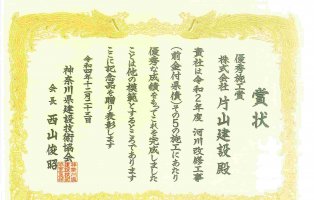 賞状
優秀施工賞
株式会社 片山建設殿
貴社は令和2年度 河川改修工事
(前金付県債)その5の施工にあたり
優秀な成績をもってこれを完成しました
ことは他の模範とするところであります
ここに記念品を贈り表彰します
令和四年十一月二十五日
神奈川県建設技術協会
会長 西山俊昭